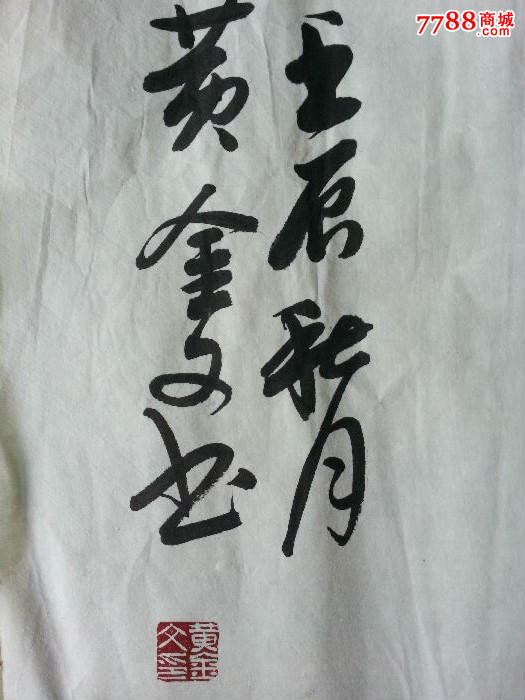 7788商城
壬辰秋月
黄金文书
黄金
文印